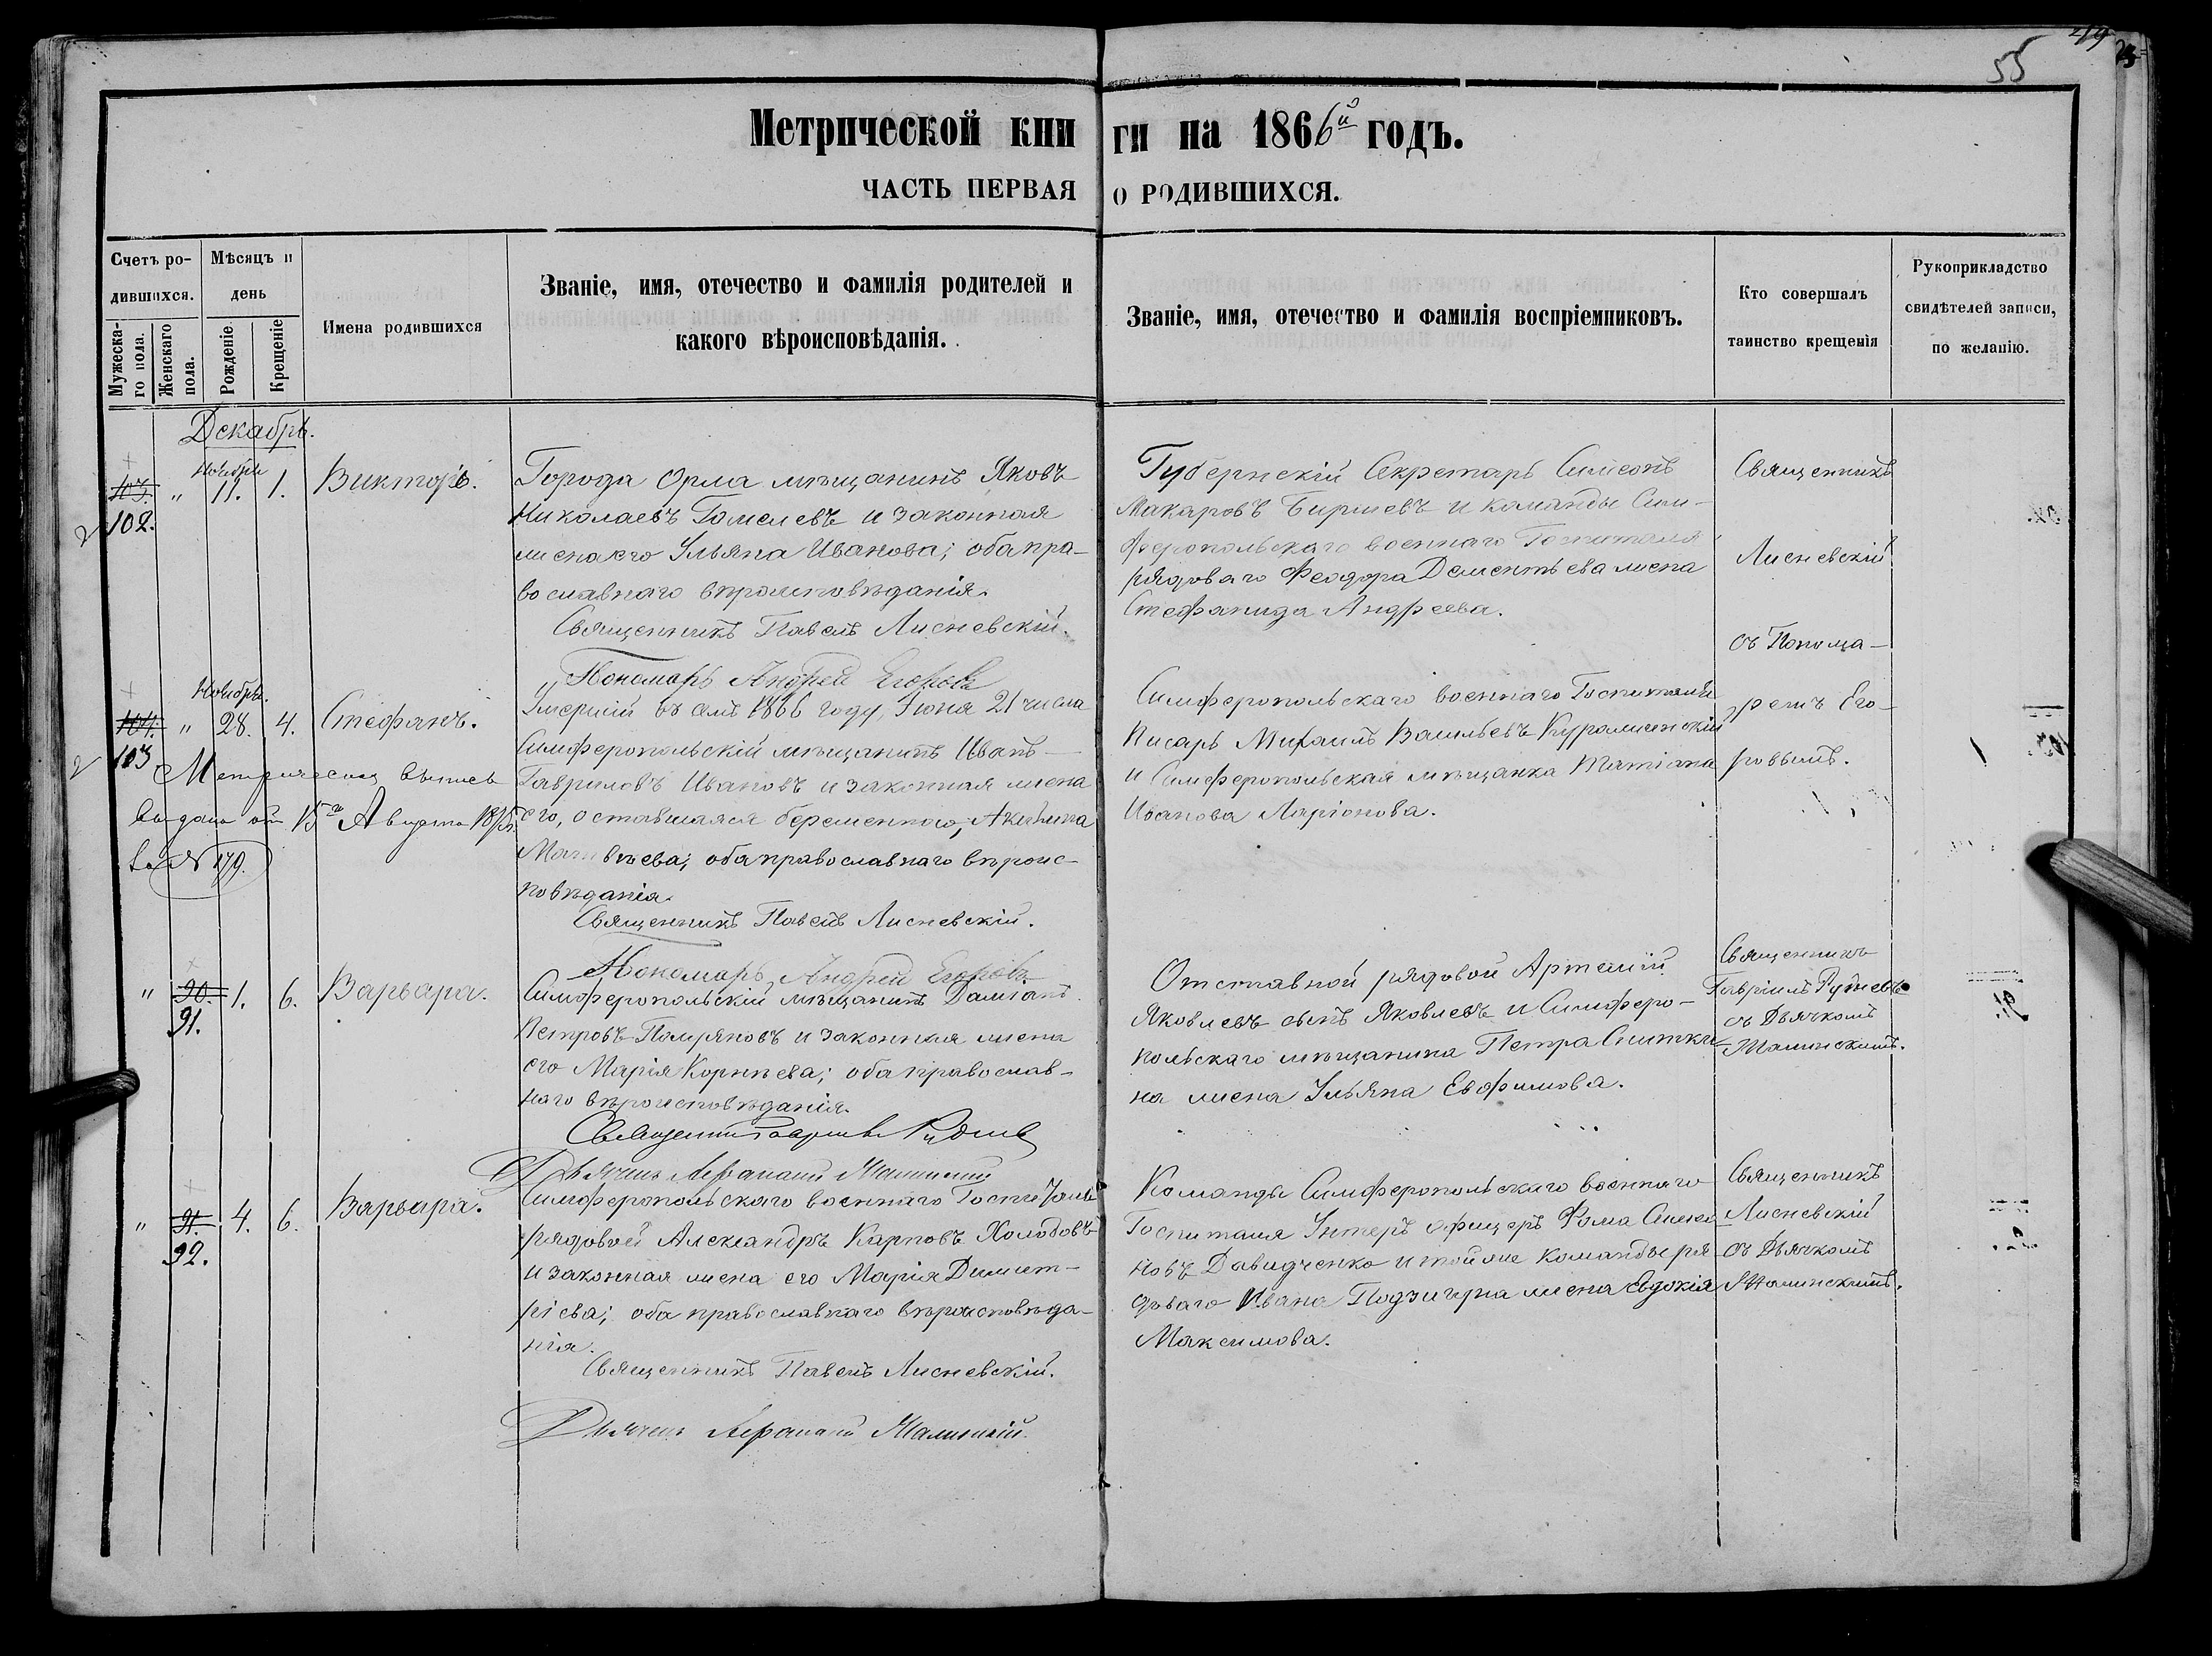 55
Метрической кни ги на 1866й годъ.
ЧАСТЬ ПЕРВАЯ О РОДИВШИХСЯ.
Счетъ ро-
дившихся.
Мужеска-
го пола.
Женскаго
пола.
Мѣсяцъ и
день
Рожденіе
Крещеніе
Имена родившихся
Званіе, имя, отечество и фамилія родителей и
какого вѣроисповѣданія.
Званіе, имя, отечество и фамилія воспріемниковъ.
Кто совершалъ
таинство крещенія
Рукоприкладство
свидѣтелей записи,
по желанію.
Декабрь.
103.
102.
"
Ноября
11.
1.
Викторъ.
Города Орла мѣщанинъ Яковъ
Николаевъ Гомелевъ и законная
жена его Ульяна Иванова; оба пра-
вославнаго вѣроисповѣданія.
Священникъ Павелъ Лисневскій.
Пономарь Андрей Егоровъ
Губернскій Секретарь Симеонъ
Макаровъ Биршевъ и команды Сим-
феропольскаго военнаго Госпиталя
рядоваго Феодора Дементьева жена
Стефанида Андреева.
Священникъ
Лисневскій
съ Понома-
ремъ Его-
ровымъ.
104.
103
"
Ноября.
28.
4.
Стефанъ.
Метрическая выпись
выдана 15го Августа
за № 179.
Умершій въ семъ 1866 году, Іюня 21 числа
Симферопольскій мѣщанинъ Иванъ
Гавриловъ Ивановъ и законная жена
его, оставшаяся беременною, Акилина
Матвѣева; оба православнаго вѣроис-
повѣданія.
Священникъ Павелъ Лисневскій.
Пономарь Андрей Егоровъ
Симферопольскаго военнаго Госпиталя
Писарь Михаилъ Васильевъ Курамшинскій
и Симферопольская мѣщанка Татіана
Иванова Ларіонова.
"
90.
91.
1.
6.
Варвара.
Симферопольскій мѣщанинъ Даміанъ
Петровъ Помряновъ и законная жена
его Марія Корнѣева; оба православ-
наго вѣроисповѣданія.
Священникъ Гавріилъ Рудневъ
Дьячекъ Афанасій Жалинскій
Отставной рядовой Артемій
Яковлевъ сынъ Яковлевъ и Симферо-
польскаго мѣщанина Петра Снитки-
на жена Ульяна Евфимова.
Священникъ
Гавріилъ Рудневъ
съ Дьячкомъ
Жалинскимъ.
"
91.
92.
4.
6.
Варвара.
Симферопольскаго военнаго Госпиталя
рядовой Александръ Карповъ Холодовъ
и законная жена его Марія Димит-
ріева; оба православнаго вѣроисповѣда-
нія.
Священникъ Павелъ Лисневскій.
Дьячекъ Афанасій Жалинскій.
Команды Симферопольскаго военнаго
Госпиталя Унтеръ офицеръ Фома Симео-
новъ Давидченко и той же команды ря-
доваго Ивана Подзигуна жена Евдокія
Максимова.
Священникъ
Лисневскій
съ Дьячкомъ
Жалинскимъ.